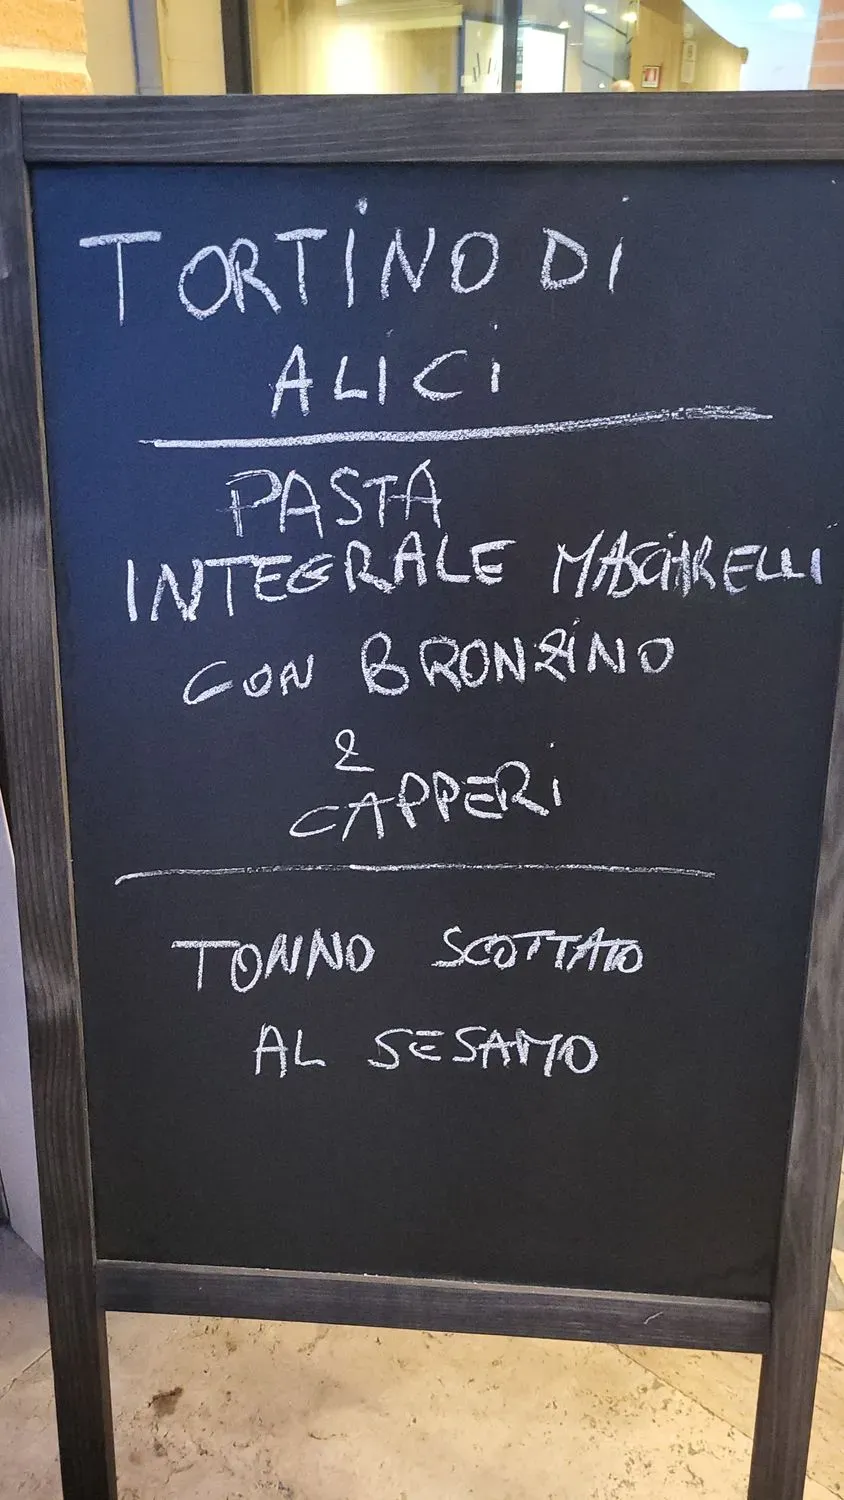 TORTINO DI
ALICI
PASTA
INTEGRALE MASCIARELLI
CON BRONZINO
&
CAPPERI
TONNO SCOTTATO
AL SESAMO